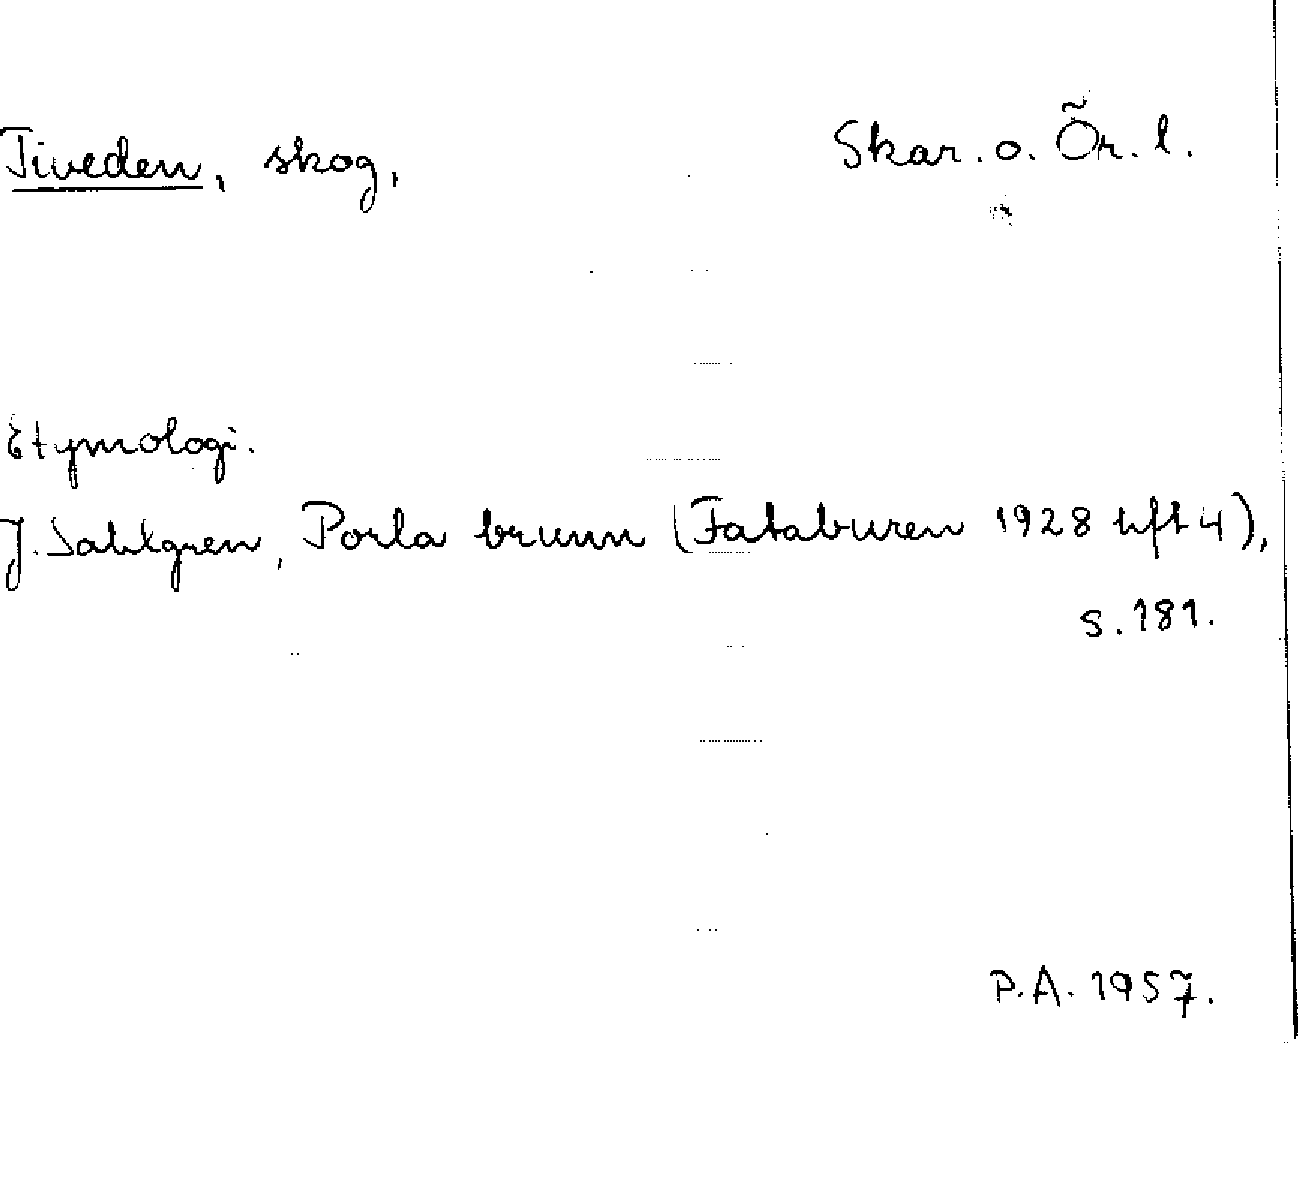 Tiveden, skog, Skar. o. Ör. l.
Etymologi.
J. Sahlgren, Porla brunn (Fataburen 1928 hft 4),
s. 181.
P.A. 1957.